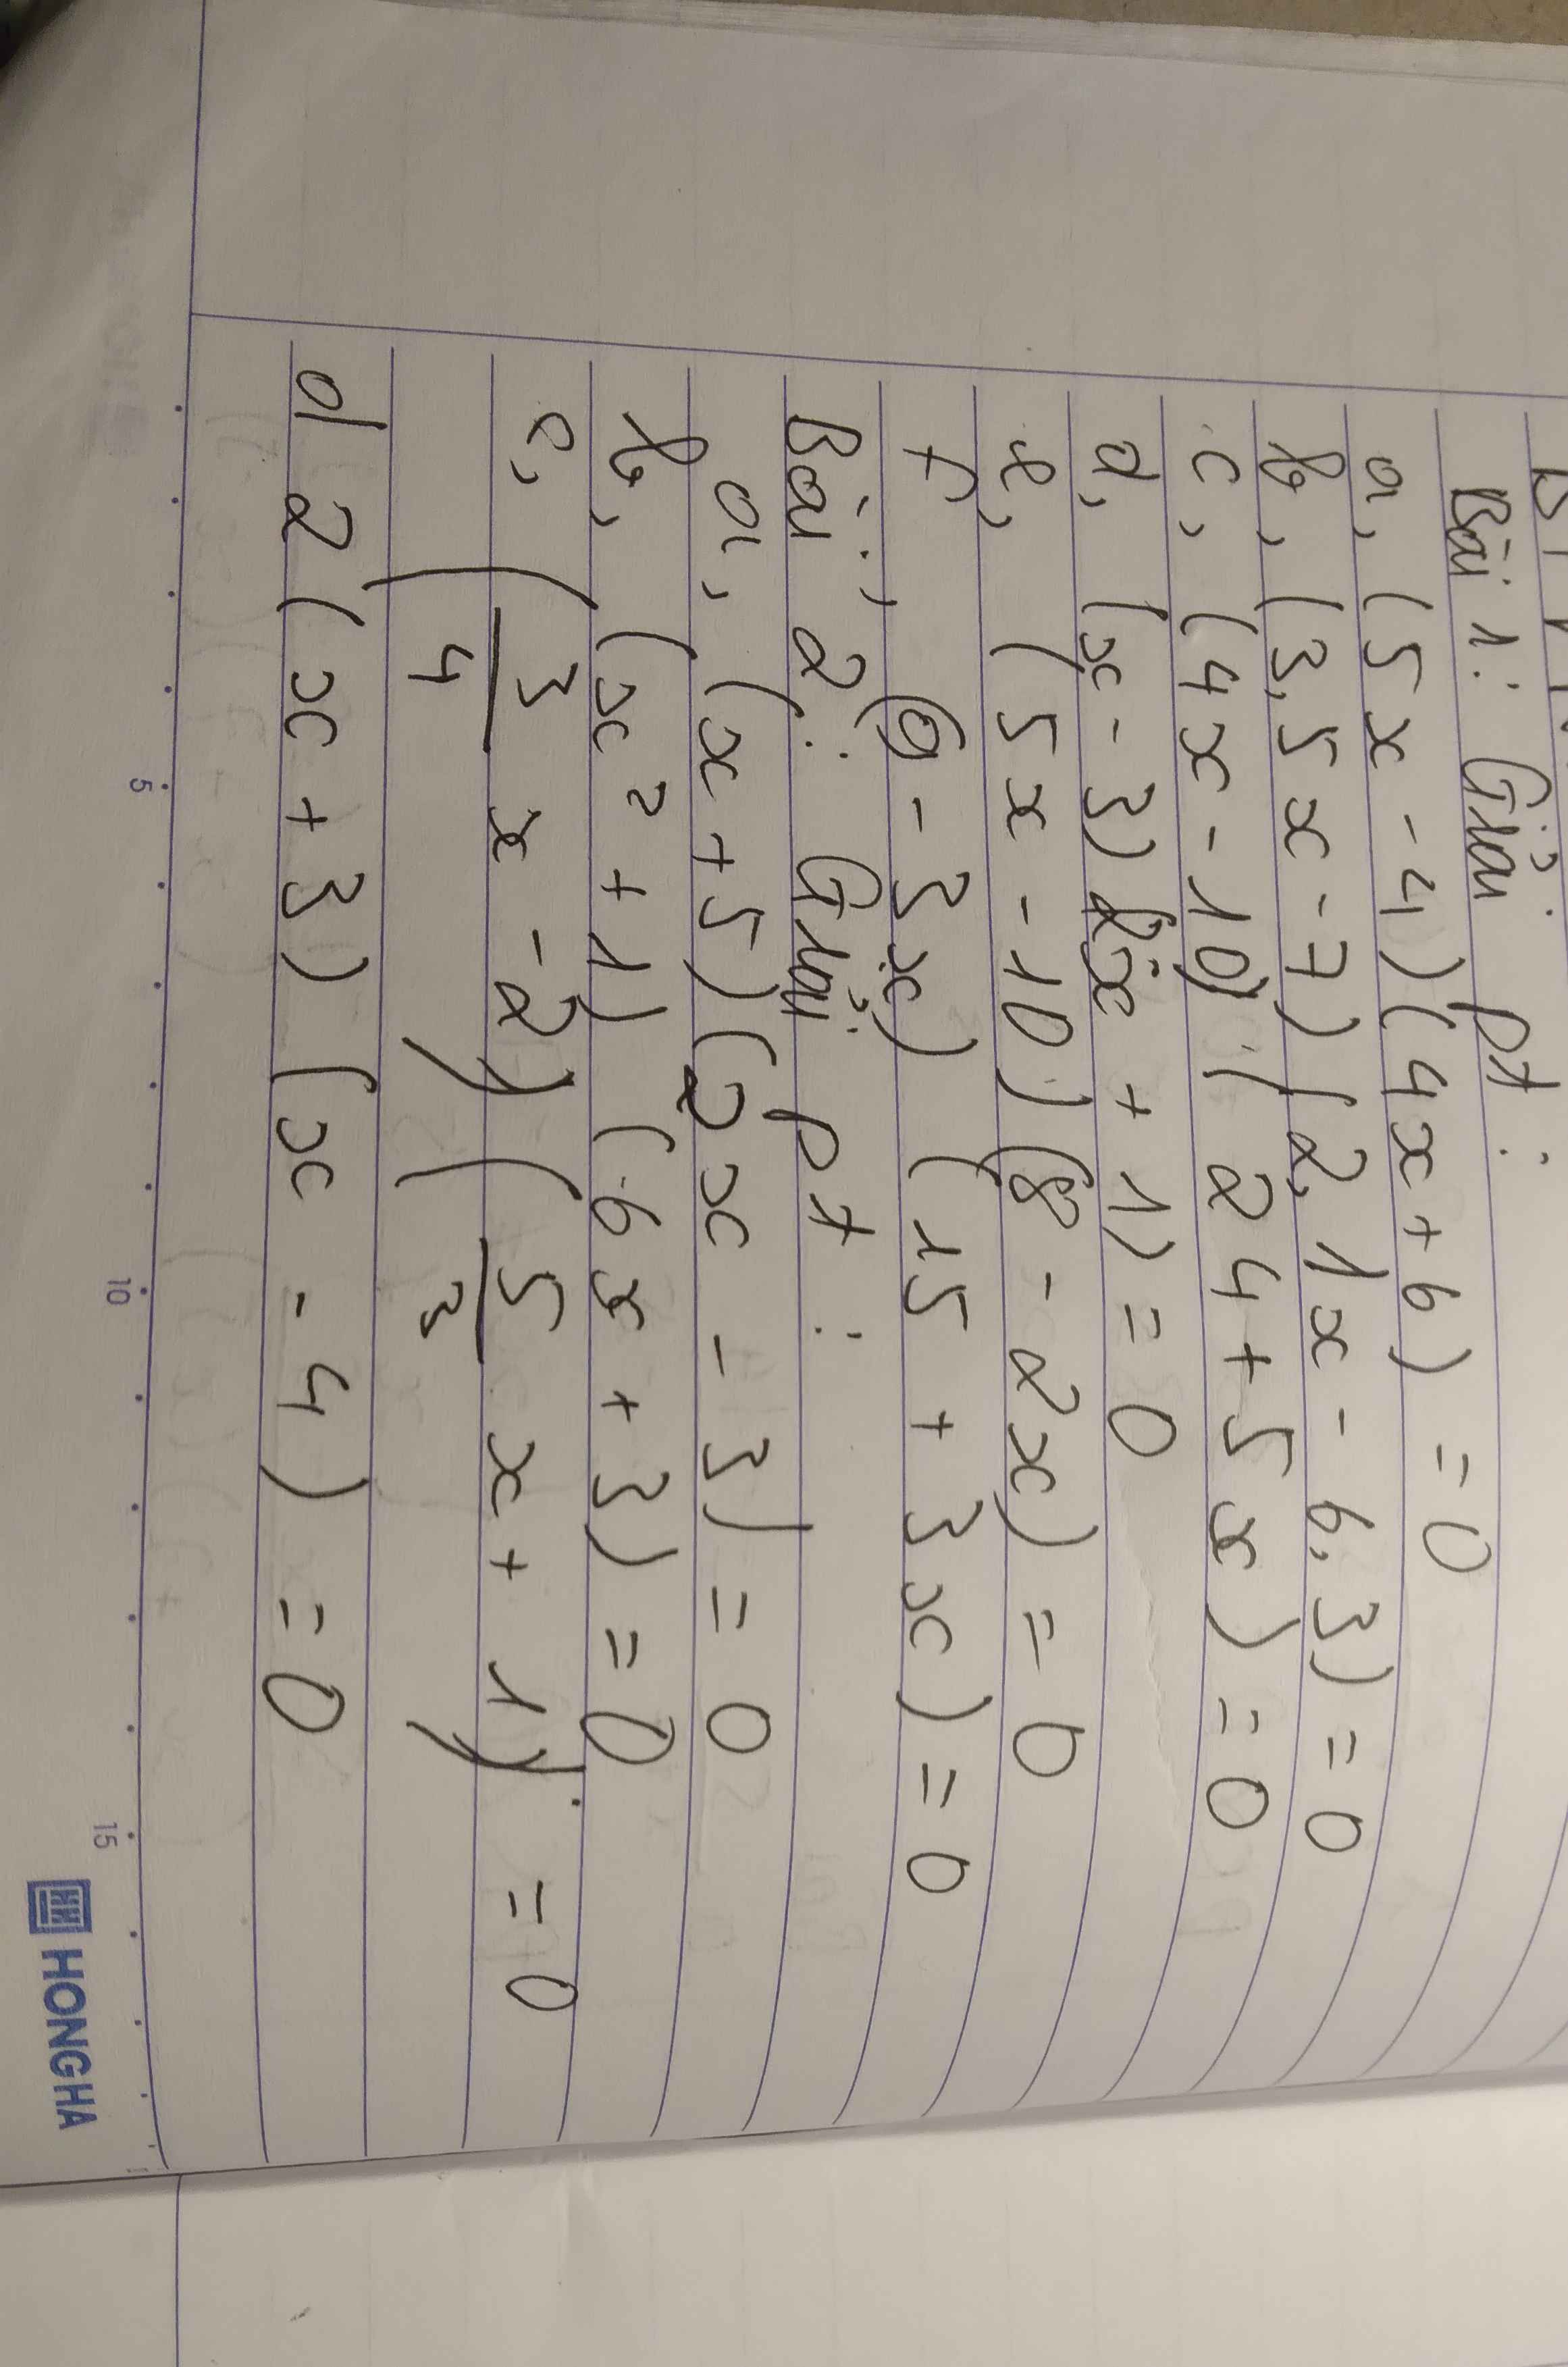 Bài 1: Giải pt:
a, (5x - 4)(4x + 6) = 0
b, (3,5x - 7)(2,1x - 6,3) = 0
c, (4x - 10)(24 + 5x) = 0
d, (x - 3)(2x + 1) = 0
e, (5x - 10)(8 - 2x) = 0
f, (9 - 3x) (15 + 3x) = 0
Bài 2: Giải pt:
a, (x + 5)(2x - 3) = 0
b, (x² + 1) (6x + 3) = 0
c, (3/4 x - 2)(5/3 x + 1) = 0
d 2(x + 3)(x - 4) = 0
5 10 15
HONGHA